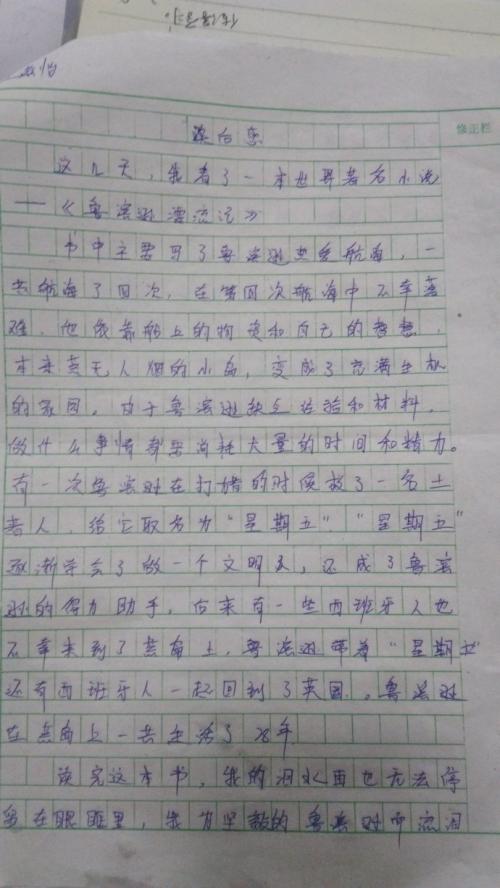 读后感
这几天，我看了一本世界著名小说
——《鲁滨逊漂流记》
书中主要写了鲁滨逊热爱航海，一
共航海了四次，在第四次航海中不幸落
难，他依靠船上的物资和自己的智慧，
本来荒无人烟的小岛，变成了充满生机
的家园。由于鲁滨逊缺乏经验和材料，
做什么事情都要消耗大量的时间和精力。
有一次鲁滨逊在打猎的时候救了一名土
著人，给它取名为“星期五”“星期五”
逐渐学会了做一个文明人，还成了鲁滨
逊的得力助手，后来有一些西班牙人也
不幸来到了荒岛上，鲁滨逊带着“星期五”
还有西班牙人一起回到了英国。鲁滨逊
在荒岛上一共生活了28年
读完这本书，我的泪水再也无法停
留在眼眶里，我为坚毅的鲁滨逊而流泪
修正栏